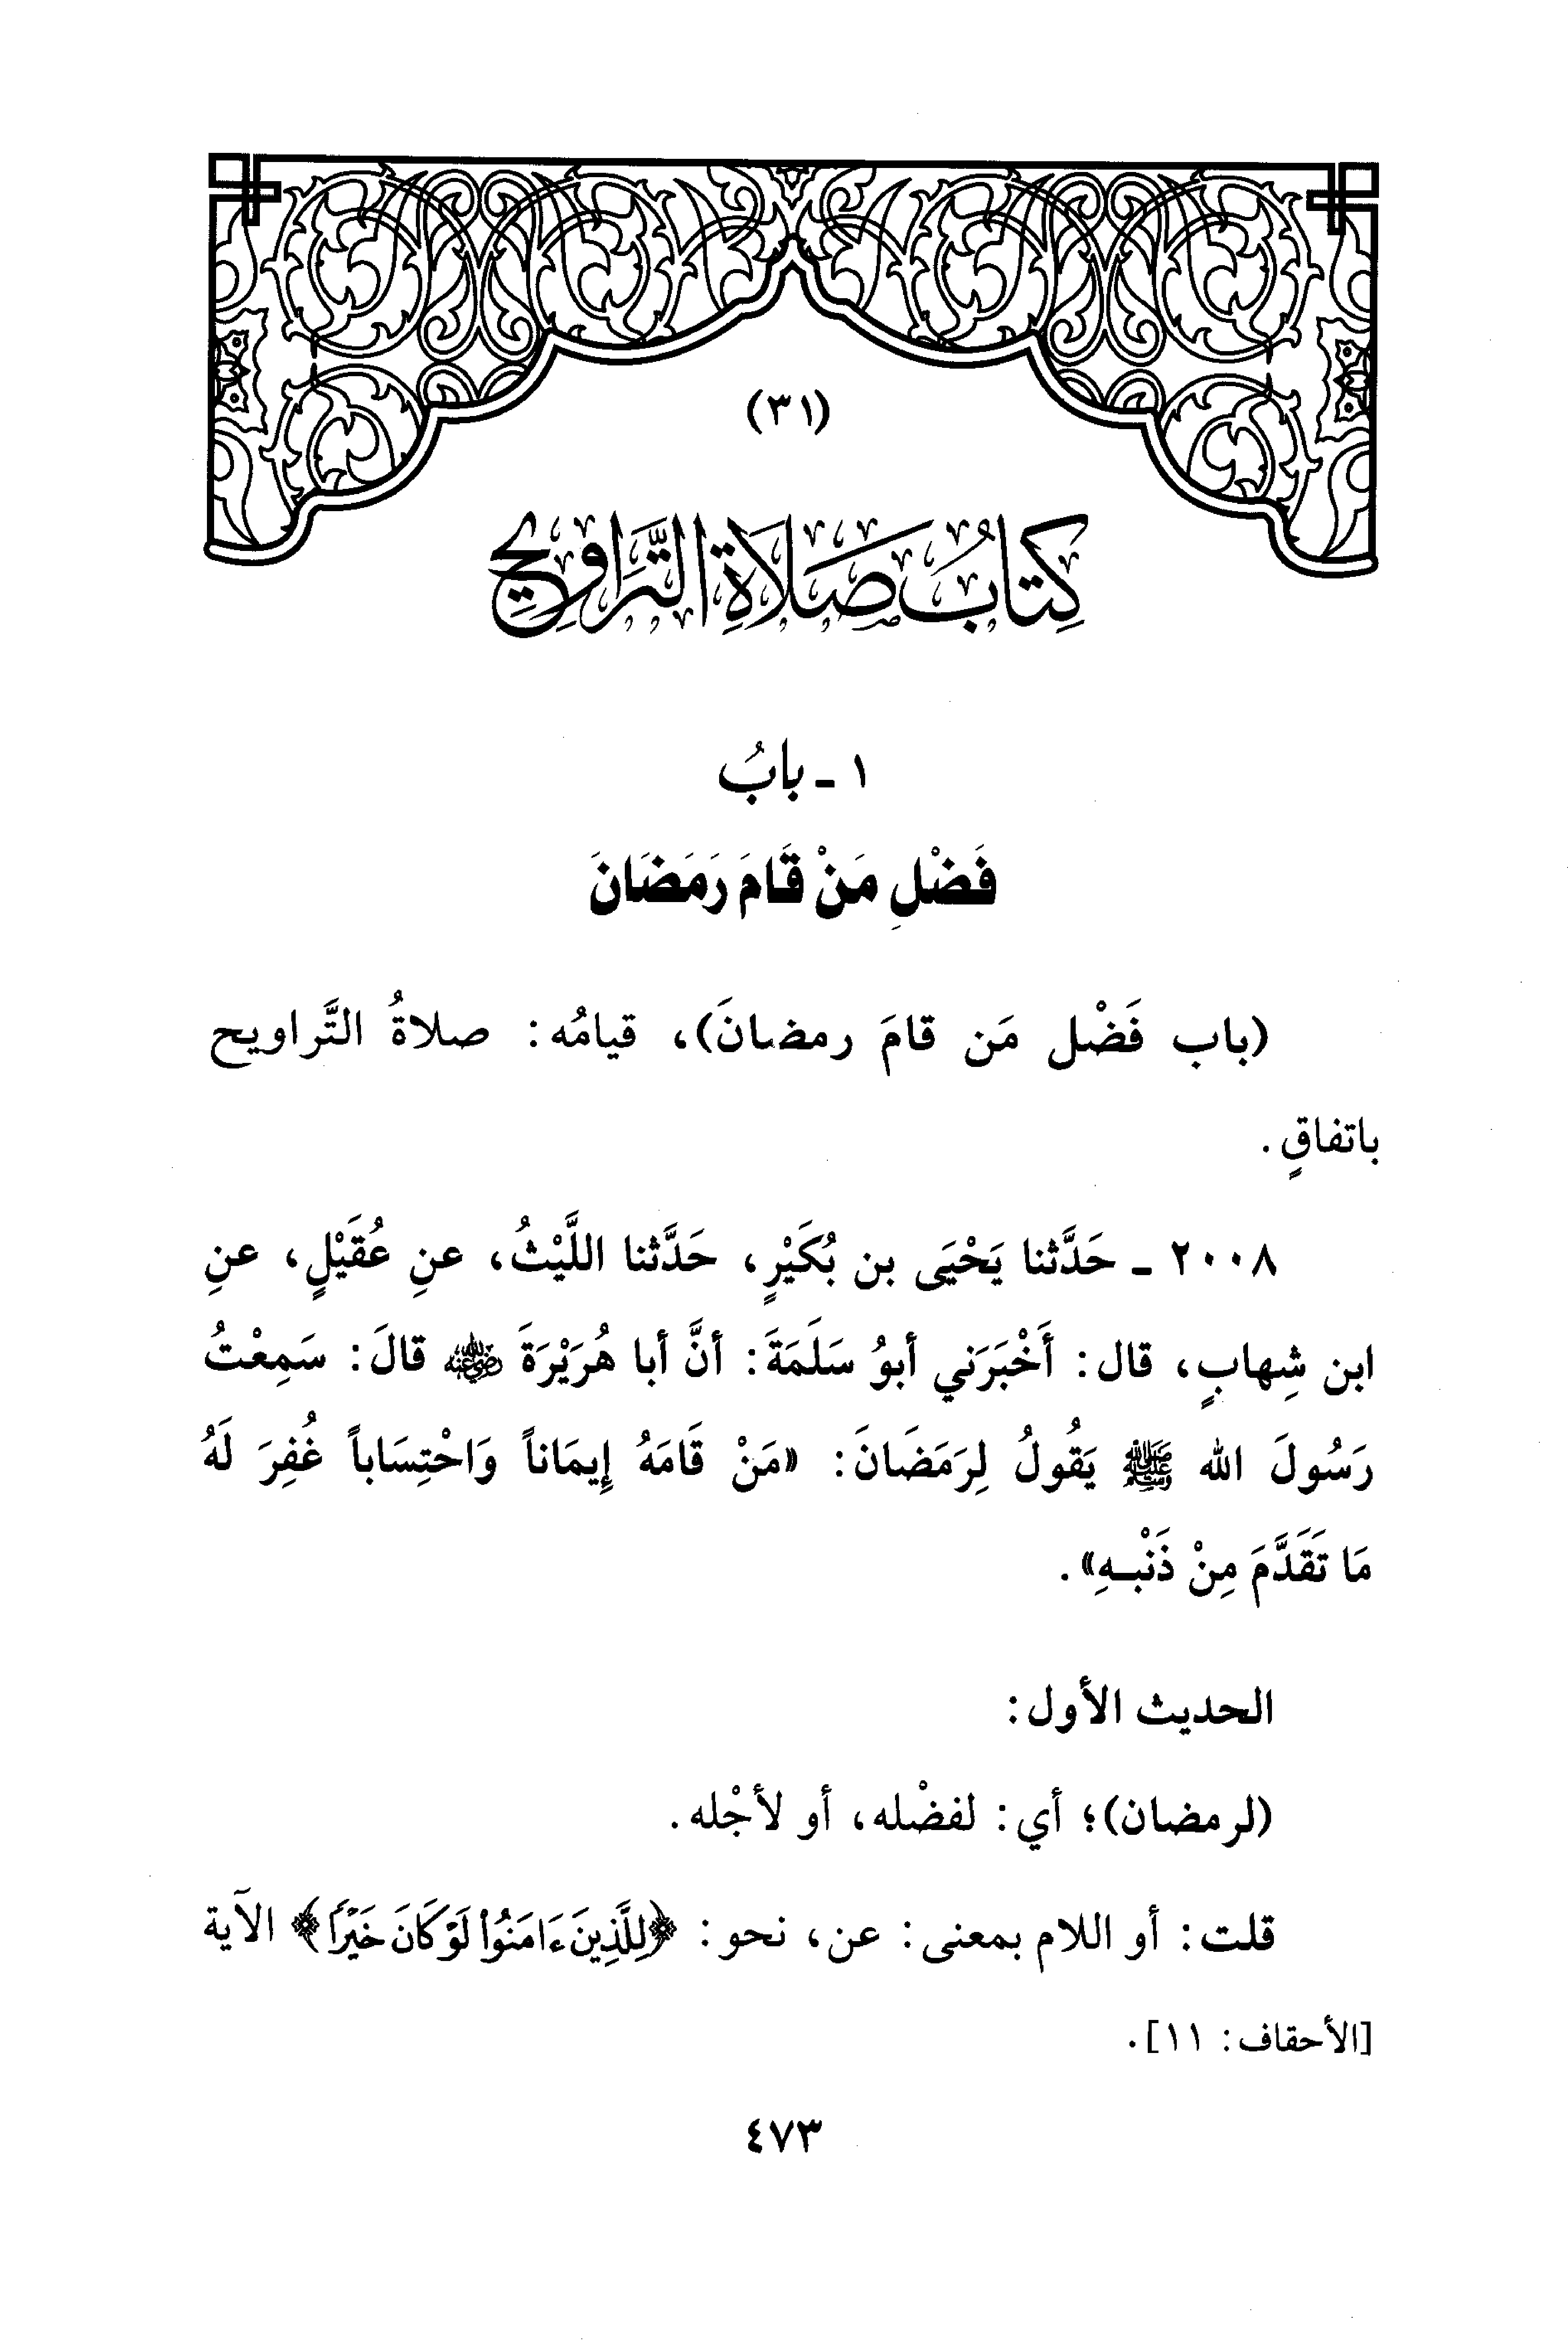 (٣١)
كِتَابُ صَلَاةِ التَّرَاوِيحِ
١ - بابُ
فَضْلِ مَنْ قَامَ رَمَضَانَ
(باب فَضْل مَن قامَ رمضانَ)، قيامُه: صلاةُ التَّراويح
باتفاقٍ.
٢٠٠٨ - حَدَّثنا يَحْيَى بن بُكَيْرٍ، حَدَّثنا اللَّيْثُ، عنِ عُقَيْلٍ، عنِ
ابن شِهابٍ، قال: أَخْبَرَني أبوُ سَلَمَةَ: أنَّ أبا هُرَيْرَةَ رضي الله عنه قالَ: سَمِعْتُ
رَسُولَ الله ﷺ يَقُولُ لِرَمَضَانَ: «مَنْ قَامَهُ إِيمَاناً وَاحْتِسَاباً غُفِرَ لَهُ
مَا تَقَدَّمَ مِنْ ذَنْبِهِ».
الحديث الأول:
(لرمضان)؛ أي: لفضْله، أو لأجْله.
قلت: أو اللام بمعنى: عن، نحو: ﴿لِلَّذِينَ ءَامَنُوا۟ لَوْ كَانَ خَيْرًا﴾ الآية
[الأحقاف: ١١].
٤٧٣